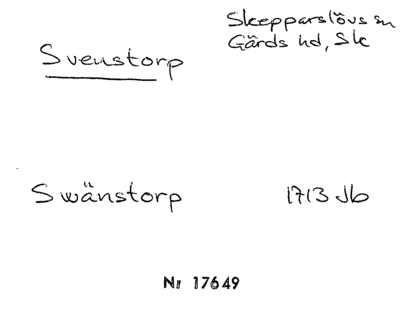 Svenstorp
Skepparslövs sn
Gärds hd, Sk
Swänstorp
1713 Jb
Nr 17649